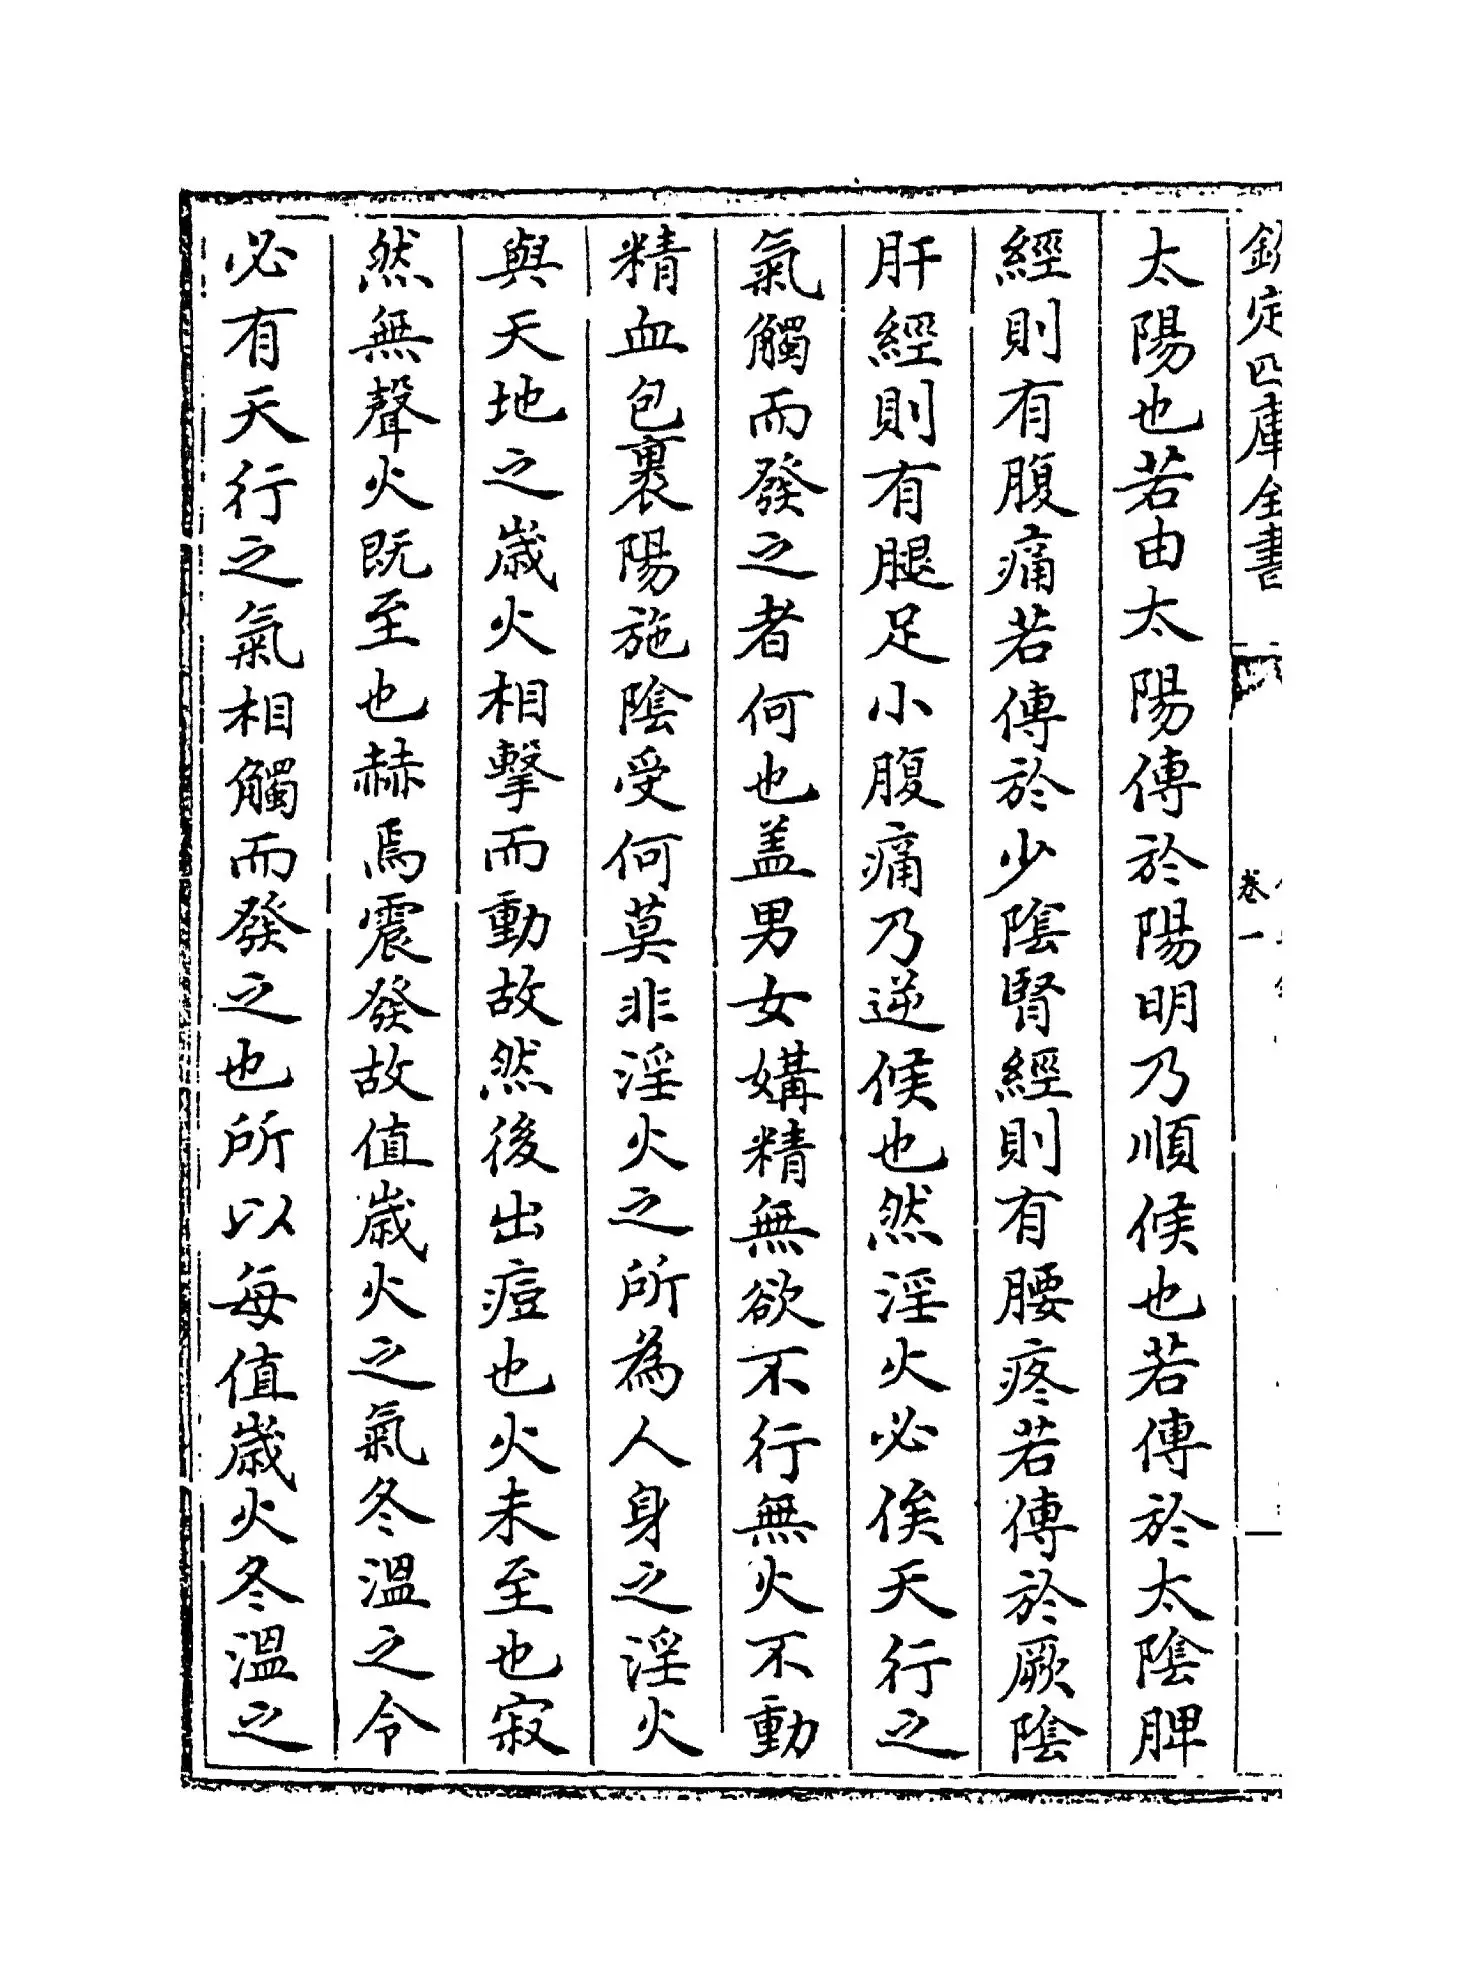 欽定四庫全書
卷一
太陽也若由太陽傳於陽明乃順候也若傳於太陰脾
經則有腹痛若傳於少陰腎經則有腰疼若傳於厥陰
肝經則有腿足小腹痛乃逆候也然淫火必俟天行之
氣觸而發之者何也盖男女媾精無欲不行無火不動
精血包裹陽施陰受何莫非淫火之所為人身之淫火
與天地之歲火相擊而動故然後出痘也火未至也寂
然無聲火既至也赫焉震發故值歲火之氣冬溫之令
必有天行之氣相觸而發之也所以每值歲火冬溫之